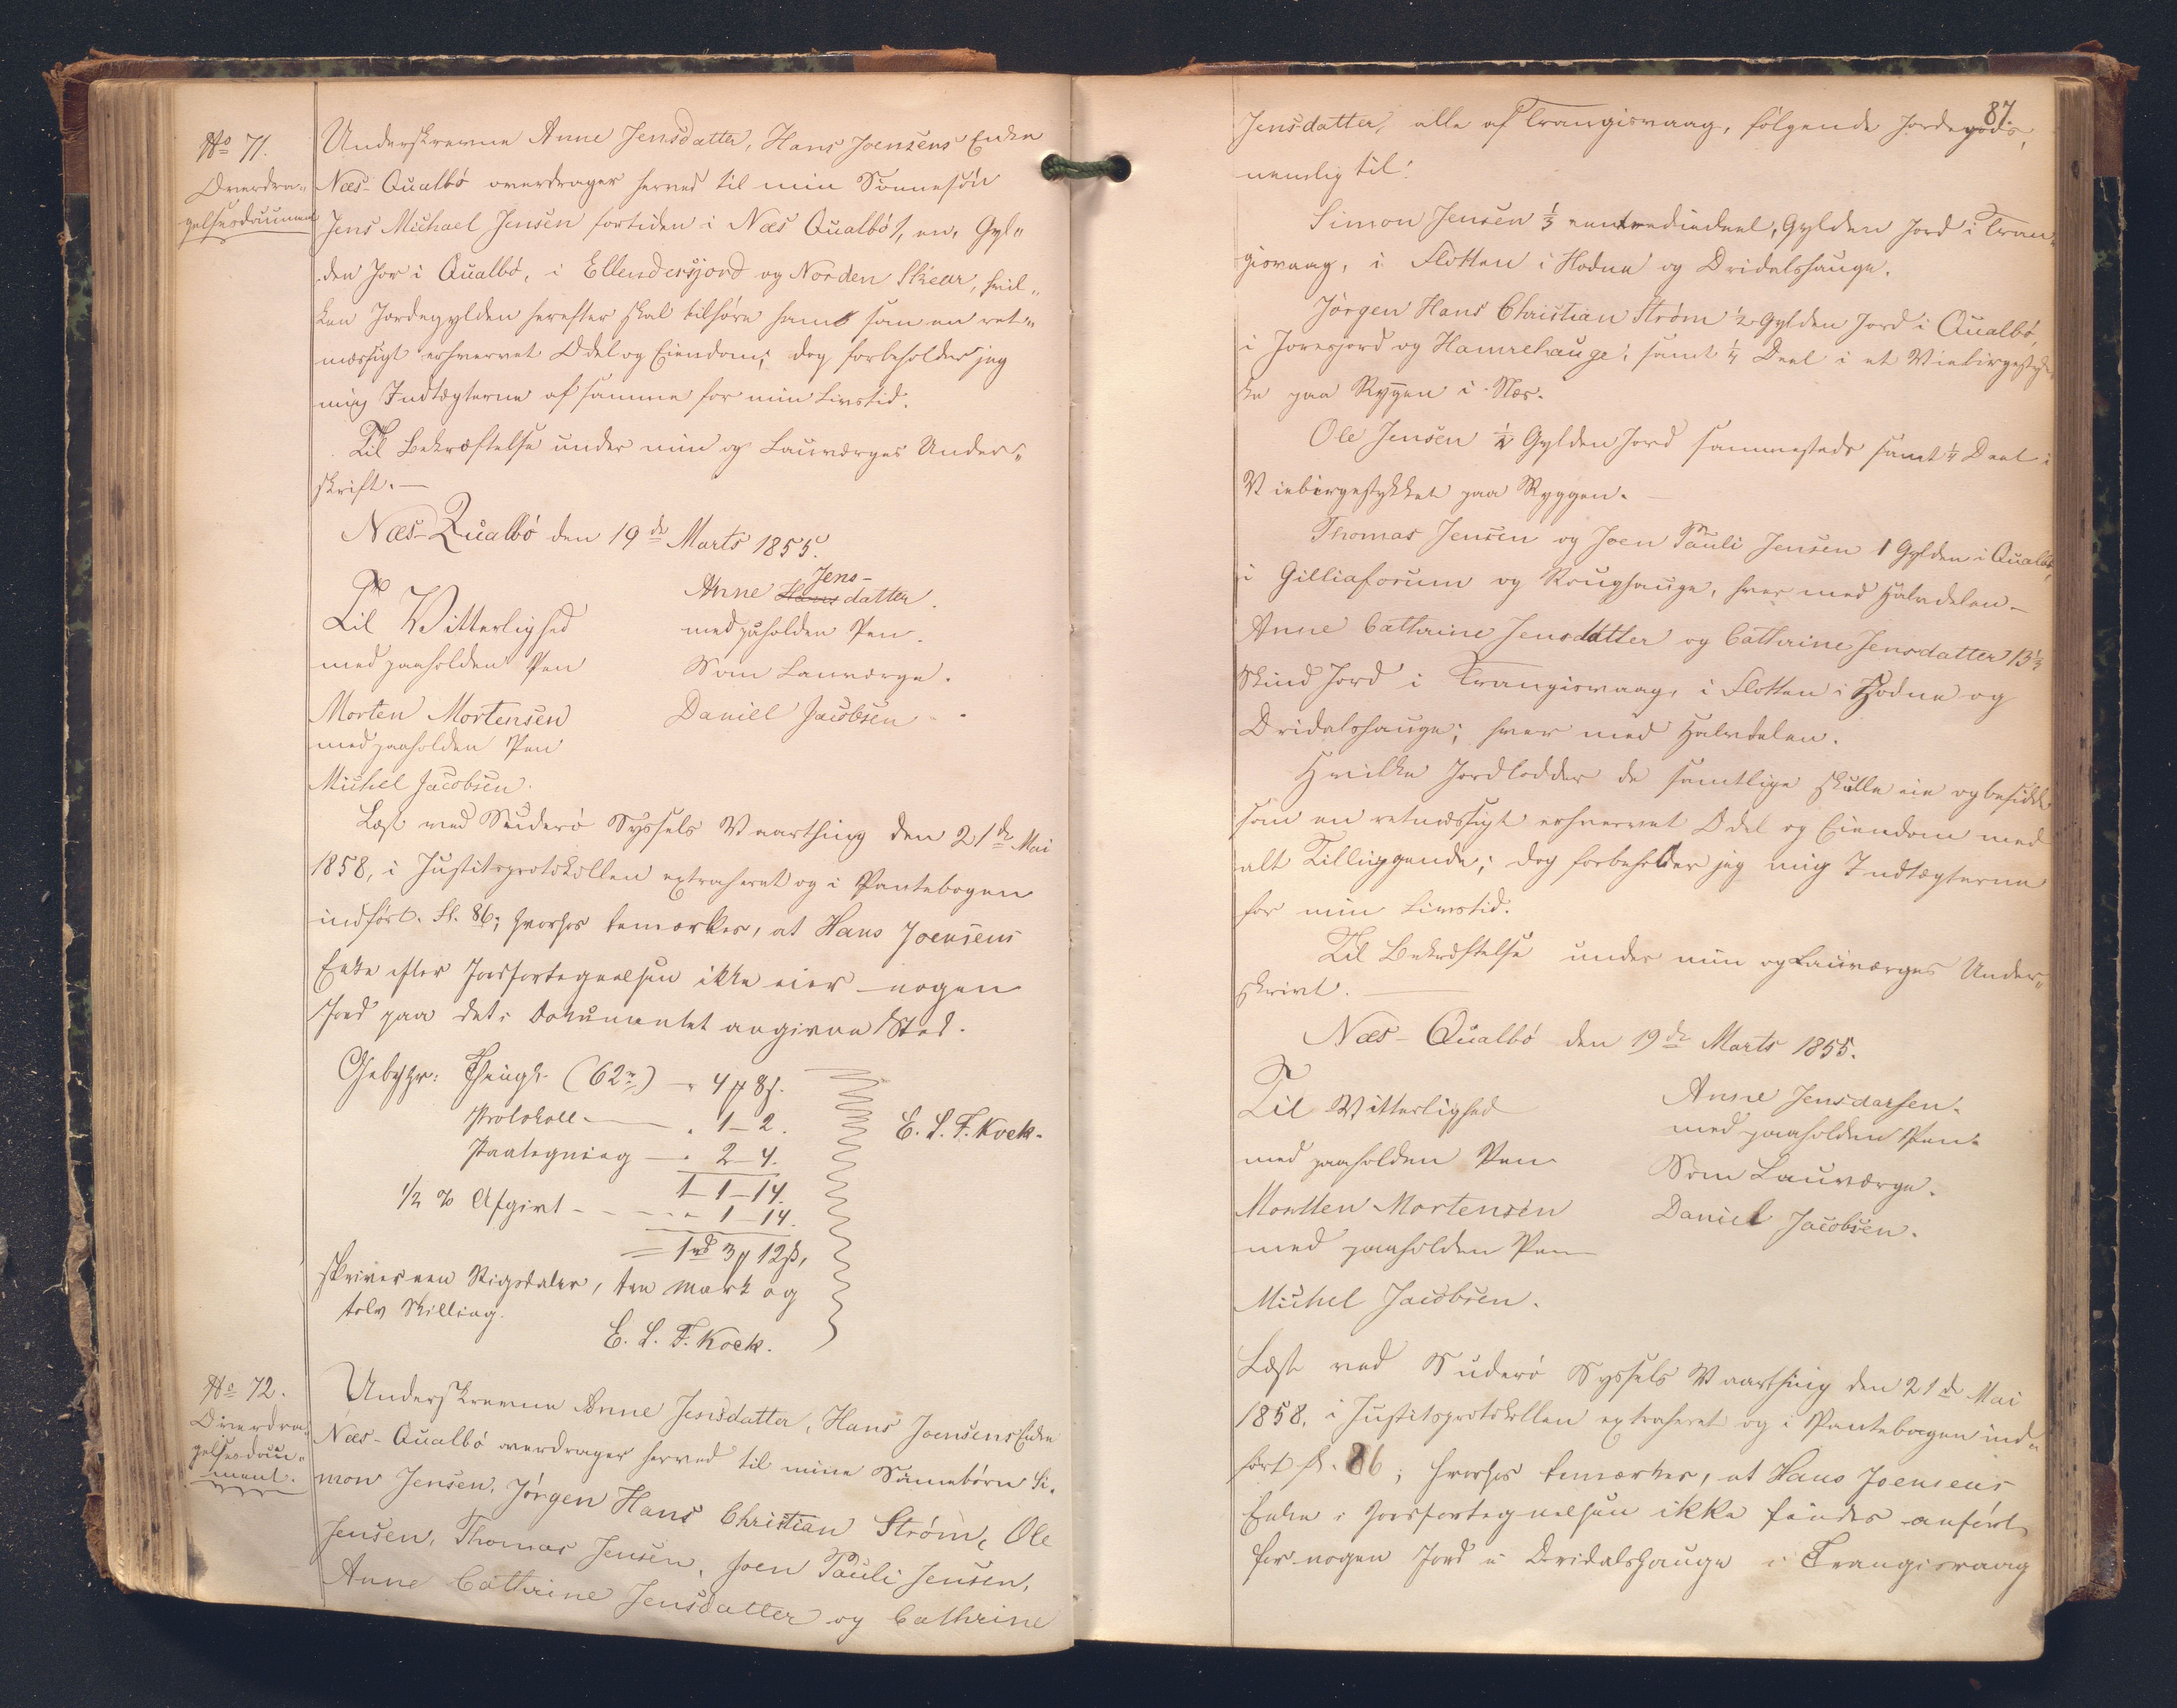 No 71.
Overdra-
gelsesdocument
Underskrevne Anne Jensdatter, Hans Joensens Enke
Næs-Qualbö overdrager herved til min Sönnesön
Jens Michael Jensen fortiden i Næs Qualbö 1, en, Gyl-
den Jor i Qualbö, i Ellendersjord og Norden Skear, hvil-
ken Jordegylden herefter skal tilhöre ham som en ret-
mæssigt erhvervet Odel og Eiendom; dog forbeholder jeg
mig Indtægterne af samme for min Livstid.
Til Bekræftelse under min og Lauværges Under-
skrift. —
Næs-Qualbö den 19de Marts 1855.
Anne Hans Jens-datter.
med paaholden Pen.
Til Vitterlighed
med paaholden Pen
Som Lauværge.
Morten Mortensen
Daniel Jacobsen
med paaholden Pen
Michel Jacobsen.
Læst ved Suderö Syssels Vaarthing den 21de Mai
1858, i Justitsprotokollen extraheret og i Pantebogen
indfört. fl. 86; hvorhos bemærkes, at Hans Joensens
Enke efter Jordfortegnelsen ikke eier nogen
Jord paa det i Dokumentet angivne Sted.
Gebyhr: Thingl. (62r) - " 4 ℳ 8 ß.
Protokoll — " 1 – 2.
E. L. F. Kock.
Paategning — " 2 – 4.
1 – 1 – 14.
1/2 % Afgivt - - - " 1 – 14.
= 1 rd 3 ℳ 12 ß,
skriver een Rigsdaler, tre Mark og
tolv Skilling.
E. L. F. Kock.
No 72.
Overdra-
gelsesdocu-
ment.
Underskrevne Anne Jensdatter, Hans Joensens Enke
Næs-Qualbö overdrager herved til mine Sönnebörn Si-
mon Jensen, Jörgen Hans Christian Ström, Ole
Jensen, Thomas Jensen, Joen Pauli Jensen,
Anne Cathrine Jensdatter og Cathrine
87.
Jensdatter, alle af Trangisvaag, fölgende Jordegods,
nemlig til:
Simon Jensen 1/3 eentrediedeel, Gylden Jord i Tran-
gisvaag, i Flotten i Hodne og Dridalshauge.
Jörgen Hans Christian Ström 1/2 Gylden Jord i Qualbö,
i Joresjord og Hamrehauge; samt 1/4 Deel i et Viebirgestyk-
ke paa Ryggen i Næs.
Ole Jensen 1/2 Gylden Jord sammesteds samt 1/4 Deel i
Viebirgestykket paa Ryggen. —
Thomas Jensen og Joen Pauli Jensen 1 Gylden i Qualbö,
i Gilliaforum og Krughauge, hver med Halvdelen —
Anne Cathrine Jensdatter og Cathrine Jensdatter 13 1/3
Skind Jord i Trangisvaag, i Flotten i Hodne og
Dridalshauge; hver med Halvdelen.
Hvilke Jordlodder de samtlige skulle eie og besidde
som en retmæssigt erhvervet Odel og Eiendom med
alt Tilliggende; dog forbeholder jeg mig Indtægterne
for min Livstid.
Til Bekræftelse under min og Lauværges Under-
skrivt. —
Næs-Qualbö den 19de Marts 1855.
Anne Jensdarsen.
Til Vitterlighed
med paaholden Pen.
med paaholden Pen
Som Lauværge.
Mortten Mortensen
Daniel Jacobsen.
med paaholden Pen
Michel Jacobsen.
Læst ved Suderö Syssels Vaarthing den 21de Mai
1858, i Justitsprotokollen extraheret og i Pantebogen ind-
fört fl. 86; hvorhos bemærkes, at Hans Joensens
Enke i Jordfortegnelsen ikke findes anfört
for nogen Jord i Dridalshauge i Trangisvaag